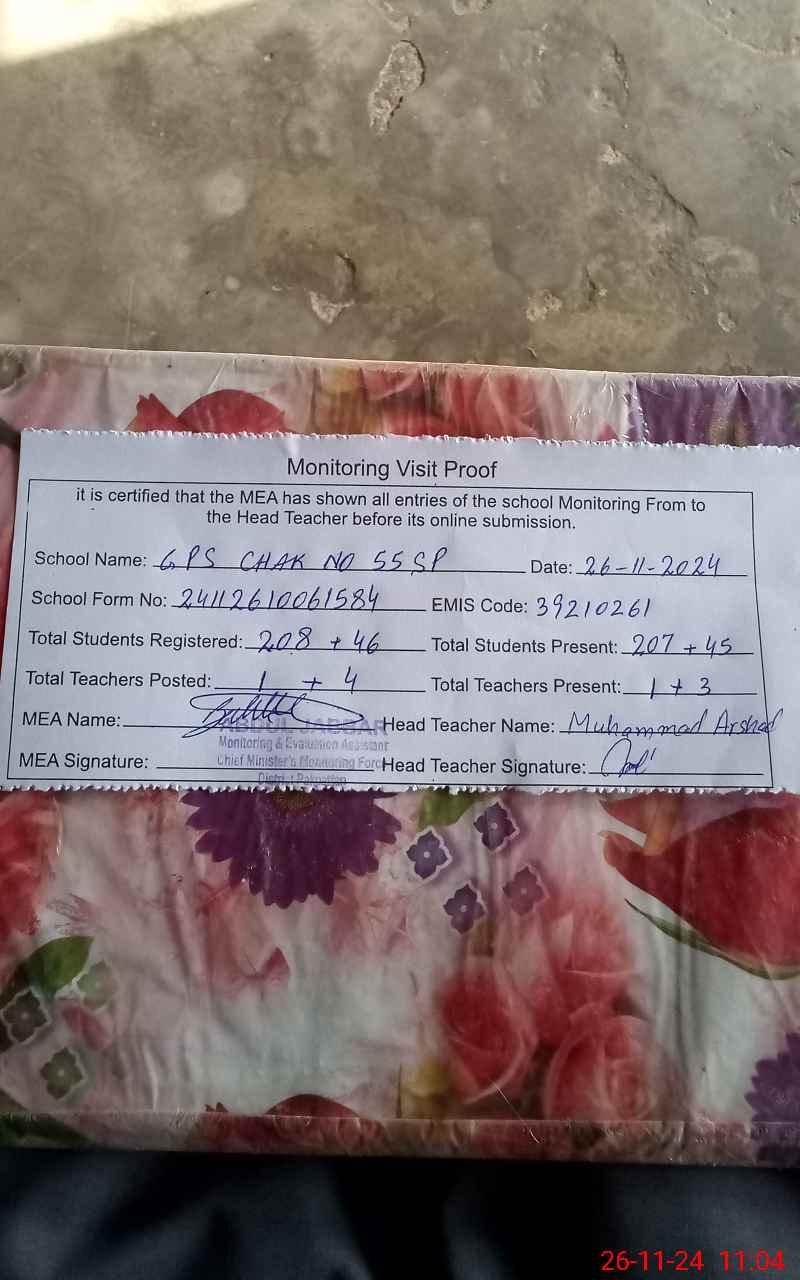 Monitoring Visit Proof
it is certified that the MEA has shown all entries of the school Monitoring From to
the Head Teacher before its online submission.
School Name: GPS CHAK NO 55 SP Date: 26-11-2024
School Form No: 24112610061584 EMIS Code: 39210261
Total Students Registered: 208 + 46 Total Students Present: 207 + 45
Total Teachers Posted: 1 + 4 Total Teachers Present: 1 + 3
MEA Name: ABDUL JABBAR Head Teacher Name: Muhammad Arshad
Monitoring & Evaluation Assistant
Chief Minister's Monitoring Force
MEA Signature: Head Teacher Signature:
District Pakpattan
26-11-24 11:04